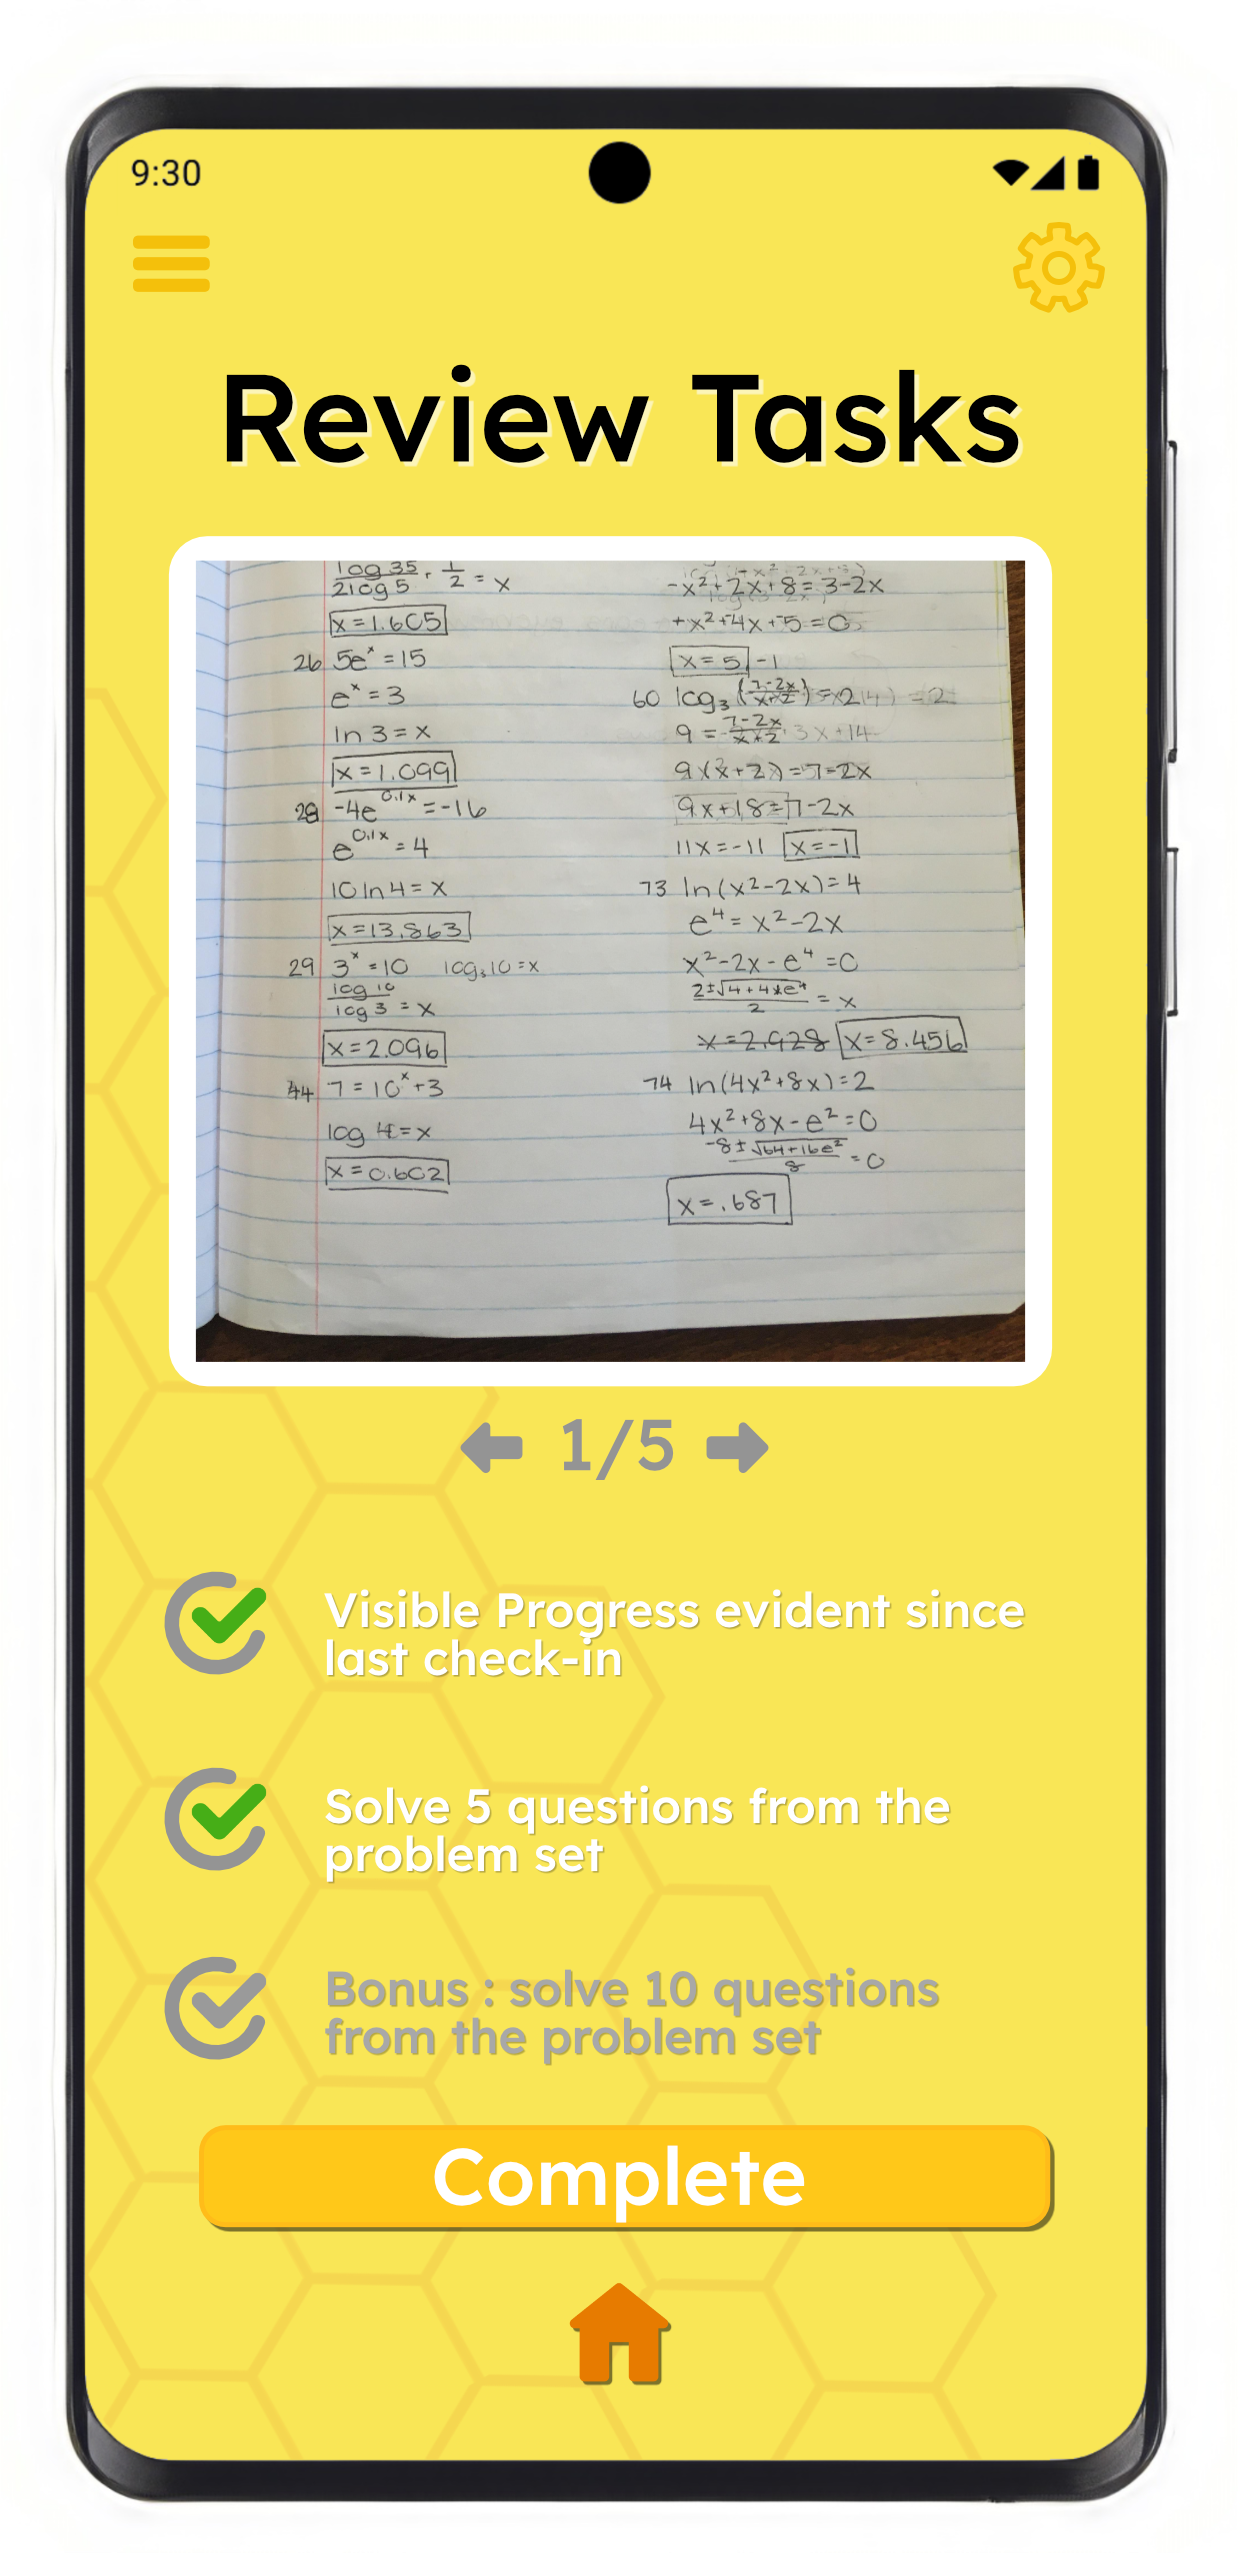 9:30
Review Tasks
log 35 / 2log 5 · 1/2 = x
x = 1.605
26 5eˣ = 15
eˣ = 3
ln 3 = x
x = 1.099
28 -4e^0.1x = -16
e^0.1x = 4
10 ln 4 = x
x = 13.863
29 3ˣ = 10 log₃10 = x
log 10 / log 3 = x
x = 2.096
44 7 = 10ˣ + 3
log 4 = x
x = 0.602
-x² + 2x + 8 = 3 - 2x
+x² + -4x + -5 = 0
x = 5 -1
60 log₃ (7-2x / x+2) = 2
9 = 7-2x / x+2
9(x+2) = 7-2x
9x + 18 = 7 - 2x
11x = -11 x = -1
73 ln(x² - 2x) = 4
e⁴ = x² - 2x
x² - 2x - e⁴ = 0
2 ± √4 + 4e⁴ / 2 = x
x = 2.928 x = 8.456
74 ln(4x² + 8x) = 2
4x² + 8x - e² = 0
-8 ± √64 + 16e² / 8 = 0
x = .687
1/5
Visible Progress evident since
last check-in
Solve 5 questions from the
problem set
Bonus : solve 10 questions
from the problem set
Complete